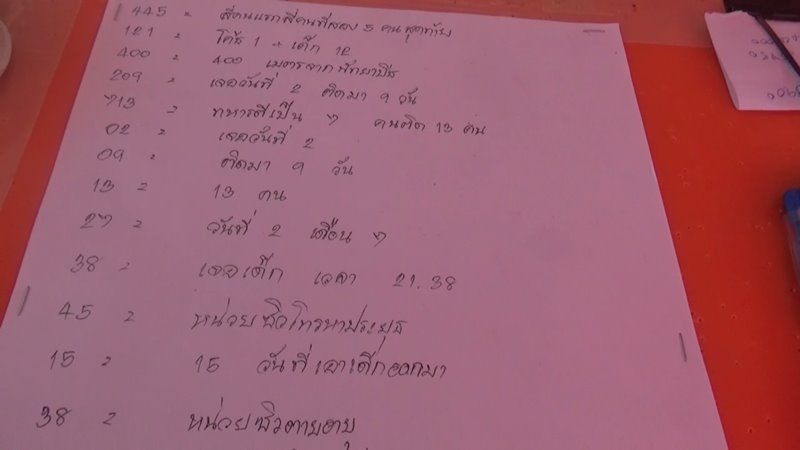 445 = สี่คนแรกสี่คนที่สอง 5 คนสุดท้าย
121 = โค้ช 1 + เด็ก 12
400 = 400 เมตรจากพัทยาบีช
209 = เจอวันที่ 2 ติดมา 9 วัน
713 = ทหารตีเป็น 7 คนติด 13 คน
02 = เจอวันที่ 2
09 = ติดมา 9 วัน
13 = 13 คน
27 = วันที่ 2 เดือน 7
38 = เจอเด็ก เวลา 21.38
45 = หน่วยซิวโทรหาประยุธ
15 = 15 วันที่เอาเด็กออกมา
38 = หน่วยซิวตายอายุ